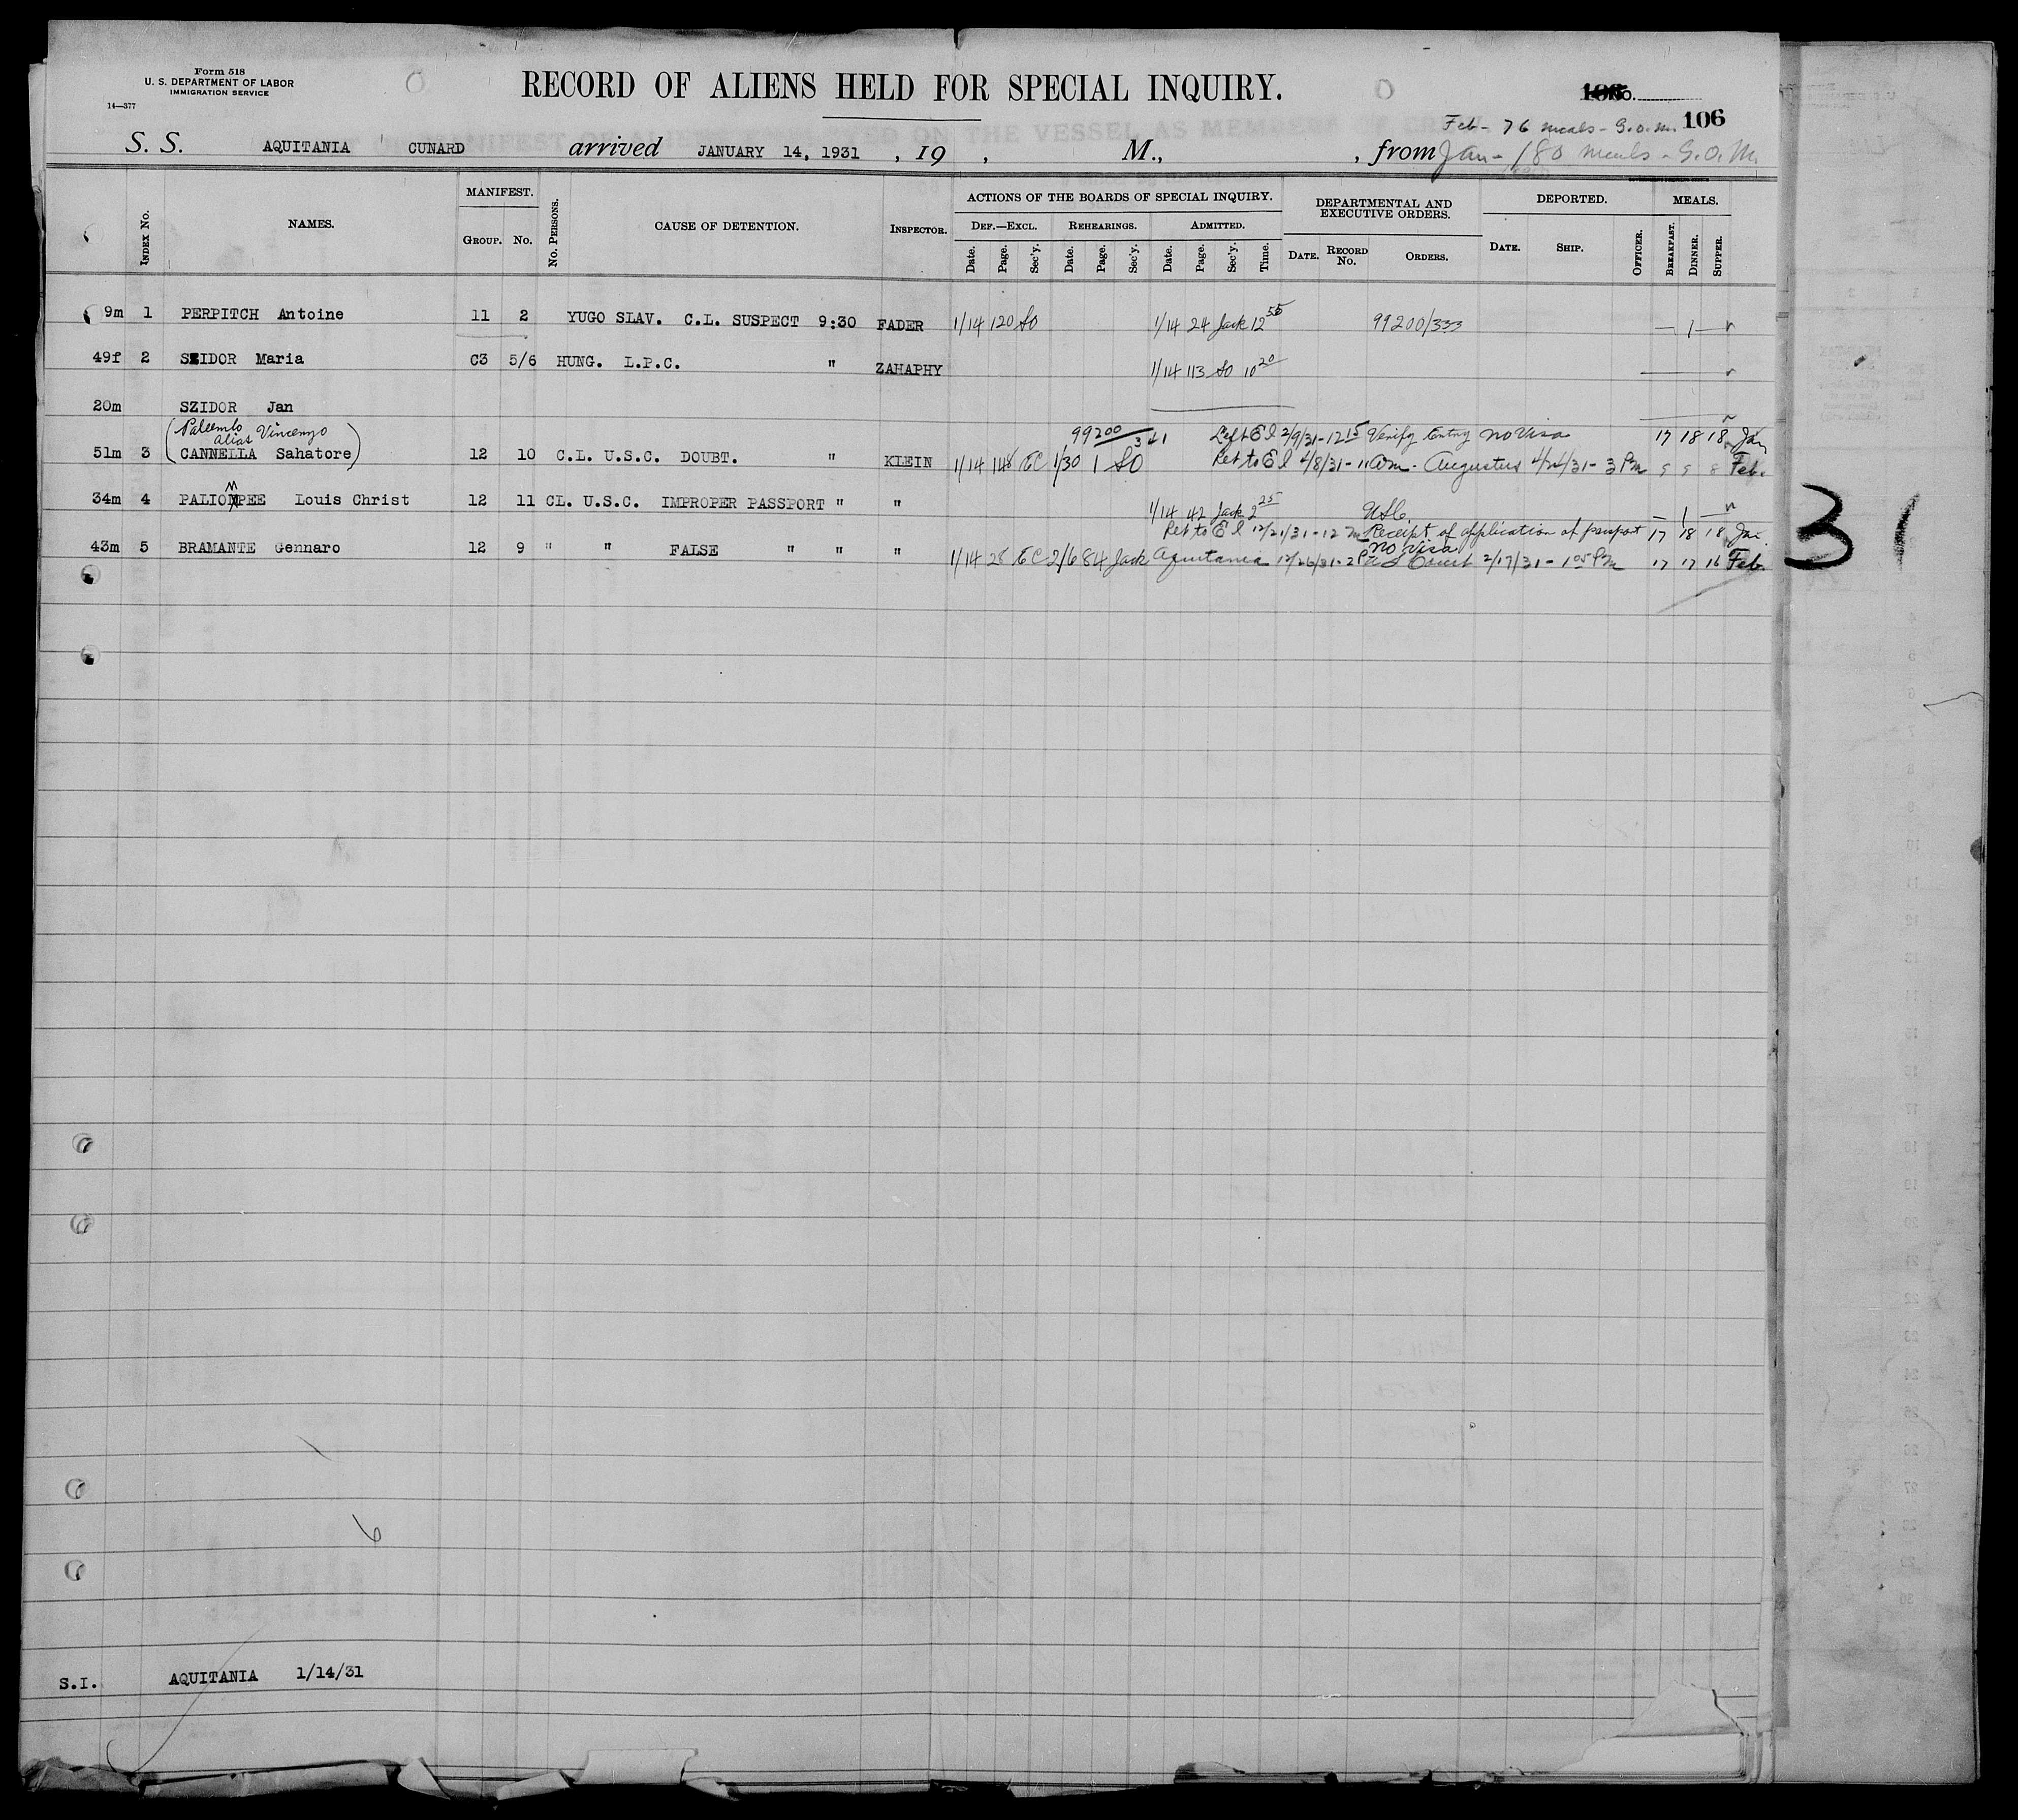 Form 518
U. S. DEPARTMENT OF LABOR
IMMIGRATION SERVICE
14—377
RECORD OF ALIENS HELD FOR SPECIAL INQUIRY.
No.
106
Feb - 76 meals - S.O.M.
S. S. AQUITANIA CUNARD arrived JANUARY 14, 1931 , 19 , M., , from Jan - 180 meals - S.O.M.
INDEX No. NAMES. MANIFEST. GROUP. No. No. PERSONS. CAUSE OF DETENTION. INSPECTOR. ACTIONS OF THE BOARDS OF SPECIAL INQUIRY. DEF.—EXCL. Date. Page. Sec'y. REHEARINGS. Date. Page. Sec'y. ADMITTED. Date. Page. Sec'y. Time. DEPARTMENTAL AND EXECUTIVE ORDERS. DATE. RECORD No. ORDERS. DEPORTED. DATE. SHIP. OFFICER. MEALS. BREAKFAST. DINNER. SUPPER.
9m 1 PERPITCH Antoine 11 2 YUGO SLAV. C.L. SUSPECT 9:30 FADER 1/14 120 SO 1/14 24 Jack 12 55 99200/333 — 1 —
49f 2 SZIDOR Maria C3 5/6 HUNG. L.P.C. " ZAHAPHY 1/14 113 SO 10 20
20m SZIDOR Jan
(Palumbo alias Vincenzo 99200/341 Left E I 2/9/31 - 12 15 Verify Entry no Visa 17 18 18 Jan
51m 3 CANNELLA Sahatore) 12 10 C.L. U.S.C. DOUBT. " KLEIN 1/14 148 EC 1/30 1 SO Ret to E I 4/8/31 - 11 am. Augustus 4/24/31 - 3 Pm 9 9 8 Feb.
34m 4 PALIOMPEE Louis Christ 12 11 CL. U.S.C. IMPROPER PASSPORT " " 1/14 42 Jack 2 25 USC — 1 —
Ret to E I 12/21/31 - 12 Receipt of application of passport 17 18 18 Jan.
no visa
43m 5 BRAMANTE Gennaro 12 9 " " FALSE " " " 1/14 28 EC 2/6 84 Jack Aquitania 12/26/31 - 2 P Court 2/17/31 - 1 05 Pm 17 17 16 Feb.
31
6
S.I. AQUITANIA 1/14/31